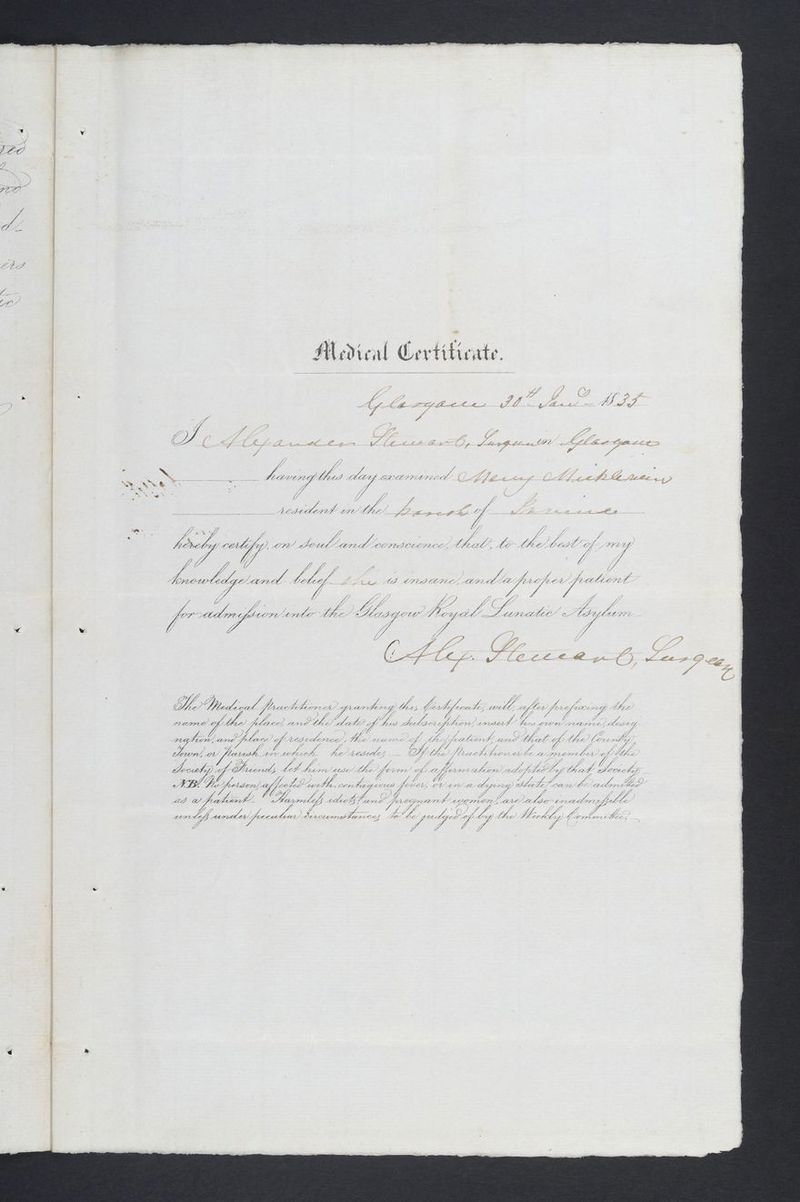 red
and
d-
ers
tic
Medical Certificate.
Glasgow 30th Jany 1835
I Alexander Stewart, Surgeon in Glasgow
having this day examined Mary
resident in the parish of Irvine
hereby certify, on soul and conscience, that, to the best of my
knowledge and belief she is insane, and a proper patient
for admission into the Glasgow Royal Lunatic Asylum
Alex. Stewart, Surgeon
The Medical Practitioner granting this Certificate, will, after prefixing the
name of the place and the date of his subscription, insert his own name, desig
nation, and place of residence, the name of the patient, and that of the County,
Town, or Parish in which he resides. – If the Practitioner be a member of the
Society of Friends, let him use the form of affirmation adopted by that Society
NB. No person affected with contagious fever, or in a dying state, can be admitted
as a patient. Harmless idiots, and pregnant women, are also inadmissible
unless under peculiar circumstances to be judged of by the Weekly Committee.